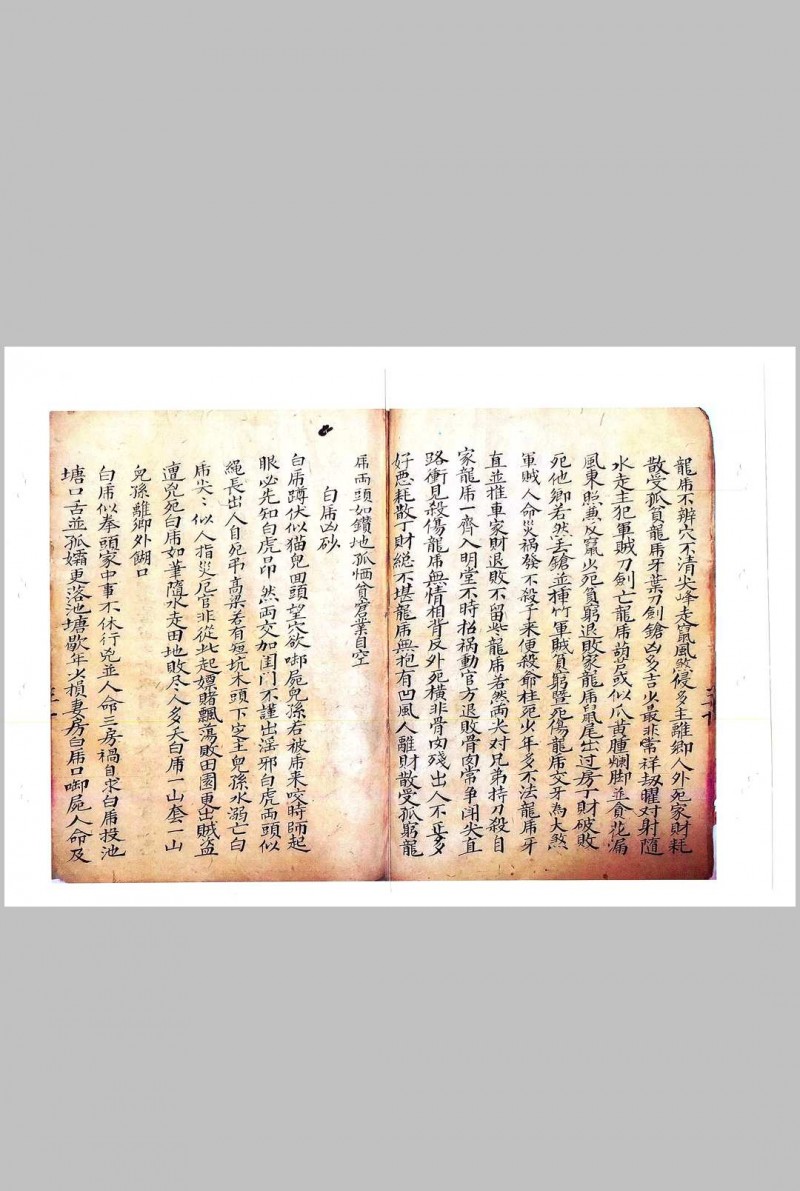 龍虎不辨穴不清尖峰走竄風煞侵多主離鄉人外死家財耗
散受孤貧龍虎牙葉刀劍鎗凶多吉少最非常祥劫曜对射隨
水走主犯軍賊刀劍亡龍虎葫芦或似爪黄腫爛脚並貪花漏
風東照兼反竄少死貧窮退敗家龍虎鼠尾出过房丁財破敗
死他鄉若然丢鎗並揰竹軍賊貧窮曁死傷龍虎交牙為大煞
軍賊人命災禍發不殺子来便殺爺枉死少年多不法龍虎牙
直並推車家財退敗不留些龍虎若然両尖对兄弟持刀殺自
家龍虎一齊入明堂不時招禍動官方退敗骨肉常争闭尖直
路衝見殺傷龍虎無情相背反外死橫非骨肉殘出人不
好悪耗散丁財総不堪龍虎無抱有凹風人離財散受孤窮龍
虎両頭如鑽地孤恓貧窘業自空
白虎凶砂
白虎蹲伏似猫兒囬頭望穴欲啣屍兒孫若被虎来咬時師起
眼必先知白虎昂然両交加闺门不謹出淫邪白虎両頭似
繩長出人自死弔高梁若有短坑木頭下定主兒孫水溺亡白
虎尖〻似人指災厄官非從此起嫖賭飄蕩敗田園更出賊盗
遭兇死白虎如筆隨水走田地敗尽人多夭白虎一山套一山
兒孫離鄉外餬口
白虎似拳頭家中事不休行兇並人命三房禍自求白虎投池
塘口舌並孤孀更落池塘歇年少損妻房白虎口啣屍人命及